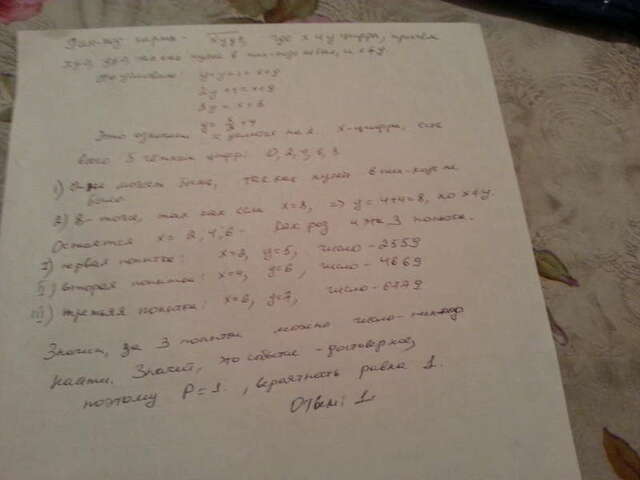 карты - xyy9, где x и y цифры, причём
так как нулей в пин-коде не было, и x≠y
По условию y+y+... = x+9
2y+1=x+9
2y = x+8
y = x/2 + 4
Это означает x делится на 2. x-цифра, есть
всего 5 чётных цифр: 0, 2, 4, 6, 8
1) не может быть, так как нулей в пин-коде не
было
2) 8 - тоже, так как если x=8, => y=4+4=8, но x≠y.
Остаётся x = 2, 4, 6 - как раз и на 3 попытки.
I) первая попытка: x=2, y=5, число - 2559
II) вторая попытка: x=4, y=6, число - 4669
III) третья попытка: x=6, y=7, число - 6779
Значит, за 3 попытки можно число
найти. Значит, это событие - достоверное,
поэтому P=1., вероятность равна 1.
Ответ: 1